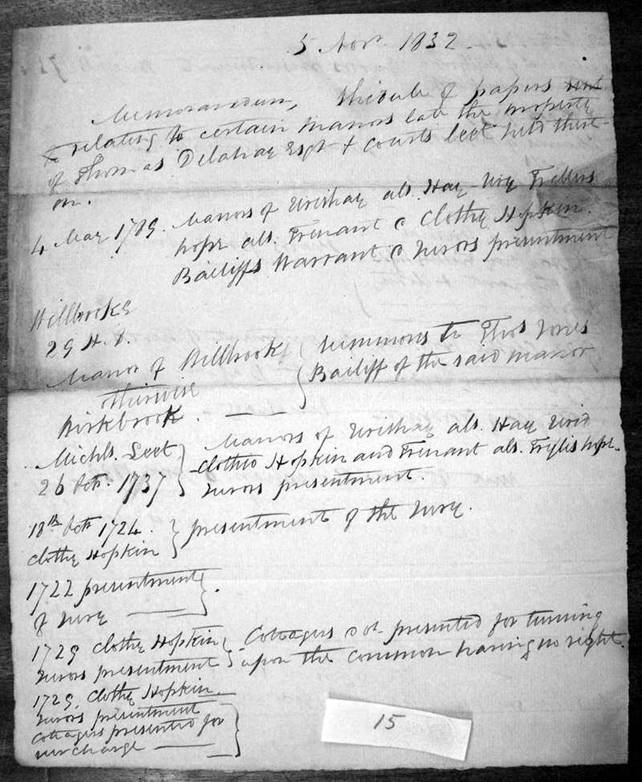 5 Novr 1832.
Memorandum, Shedule of papers
relating to certain manors late the property
of Thomas Delahay Esqr & Courts Leet held there
on.
4 May 1719. Manors of Urishay als. Hay Urry Trellis
hope als. Trenant & Clothy Hopkin.
Bailiffs Warrant & Jurors presentment
Hillbrooke
29 H. 8.
Manor of Billbrook summons to Thos Jones
otherwise Bailiff of the said manor
Birkbrook.
Michls. Leet Manors of Urishay als. Hay Urid
26 Octr. 1737 Clothie Hopkin and Trenant als. Frylis hope.
Jurors presentment.
18th Octr 1724. presentment of the Jury.
Clothy Hopkin
1722 presentment
of Jury
1729 Clothy Hopkin Cottagers &c presented for turning
Jurors presentment upon the common having no right.
1729. Clothy Hopkin.
Jurors presentment
Cottagers presented for
surcharge
15